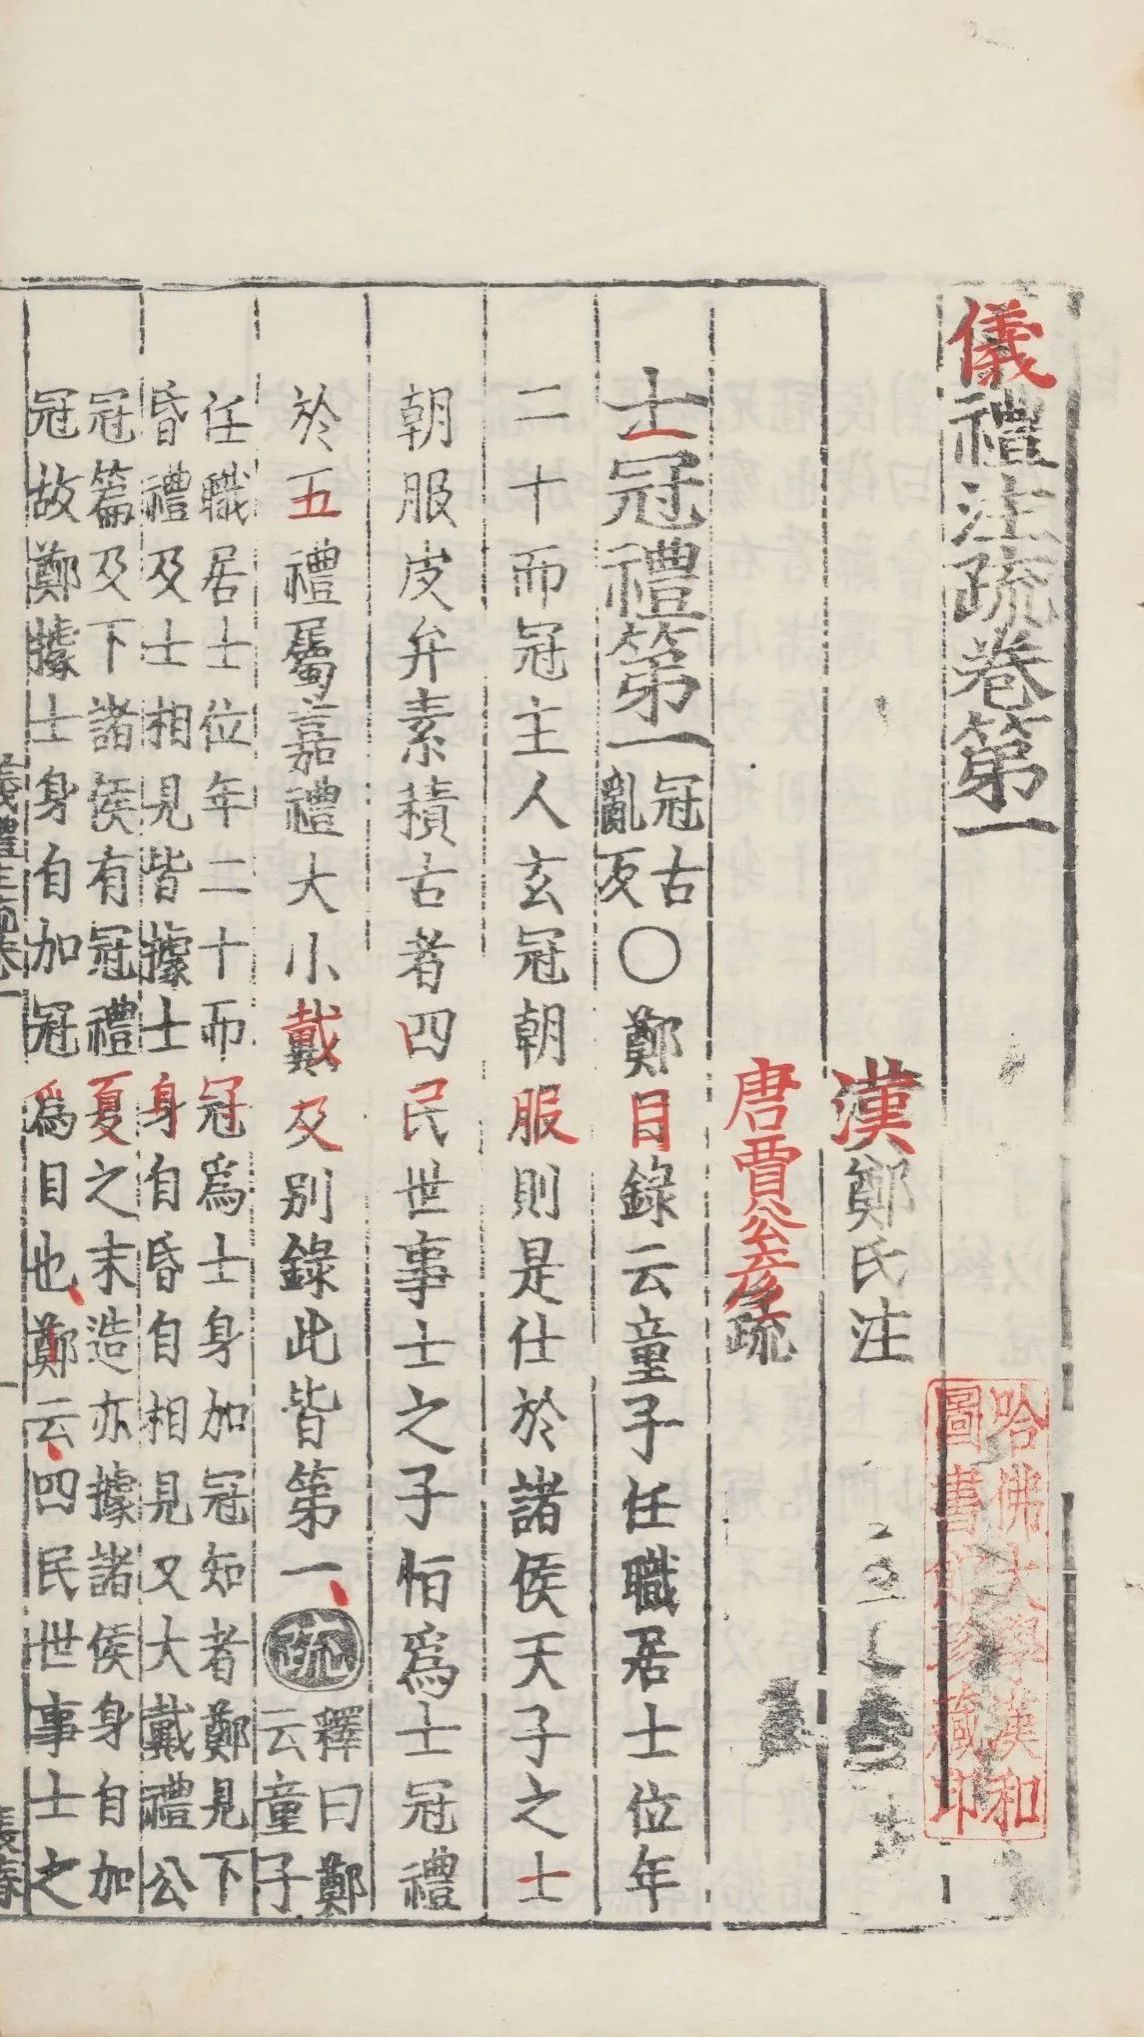 儀禮注疏卷第一
漢鄭氏注
唐賈公彦疏
士冠禮第一冠古亂反〇鄭目錄云童子任職居士位年
二十而冠主人玄冠朝服則是仕於諸侯天子之士
朝服皮弁素積古者四民世事士之子恒爲士冠禮
於五禮屬嘉禮大小戴及别錄此皆第一疏釋曰鄭云童子
任職居士位年二十而冠爲士身加冠知者鄭見下
昏禮及士相見皆據士身自昏自相見又大戴禮公
冠篇及下諸侯有冠禮夏之末造亦據諸侯身自加
冠故鄭據士身自加冠爲目也鄭云四民世事士之
儀禮注疏卷一
哈佛大學漢和
圖書館珍藏印